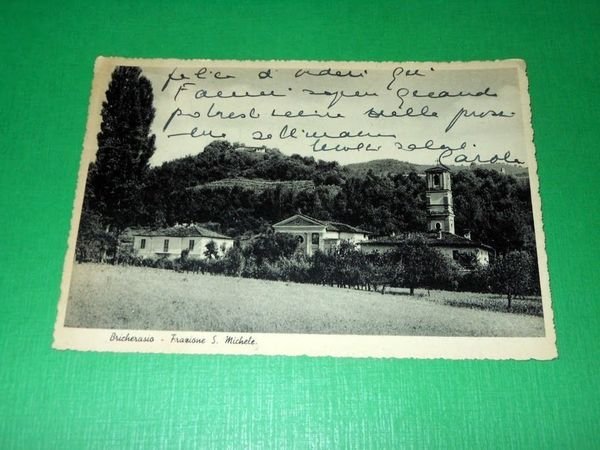 felice di vederi qui
Fammi sapere quando
potresti venire nella pross
ima settimana
molti saluti
Carola
Bricherasio - Frazione S. Michele.